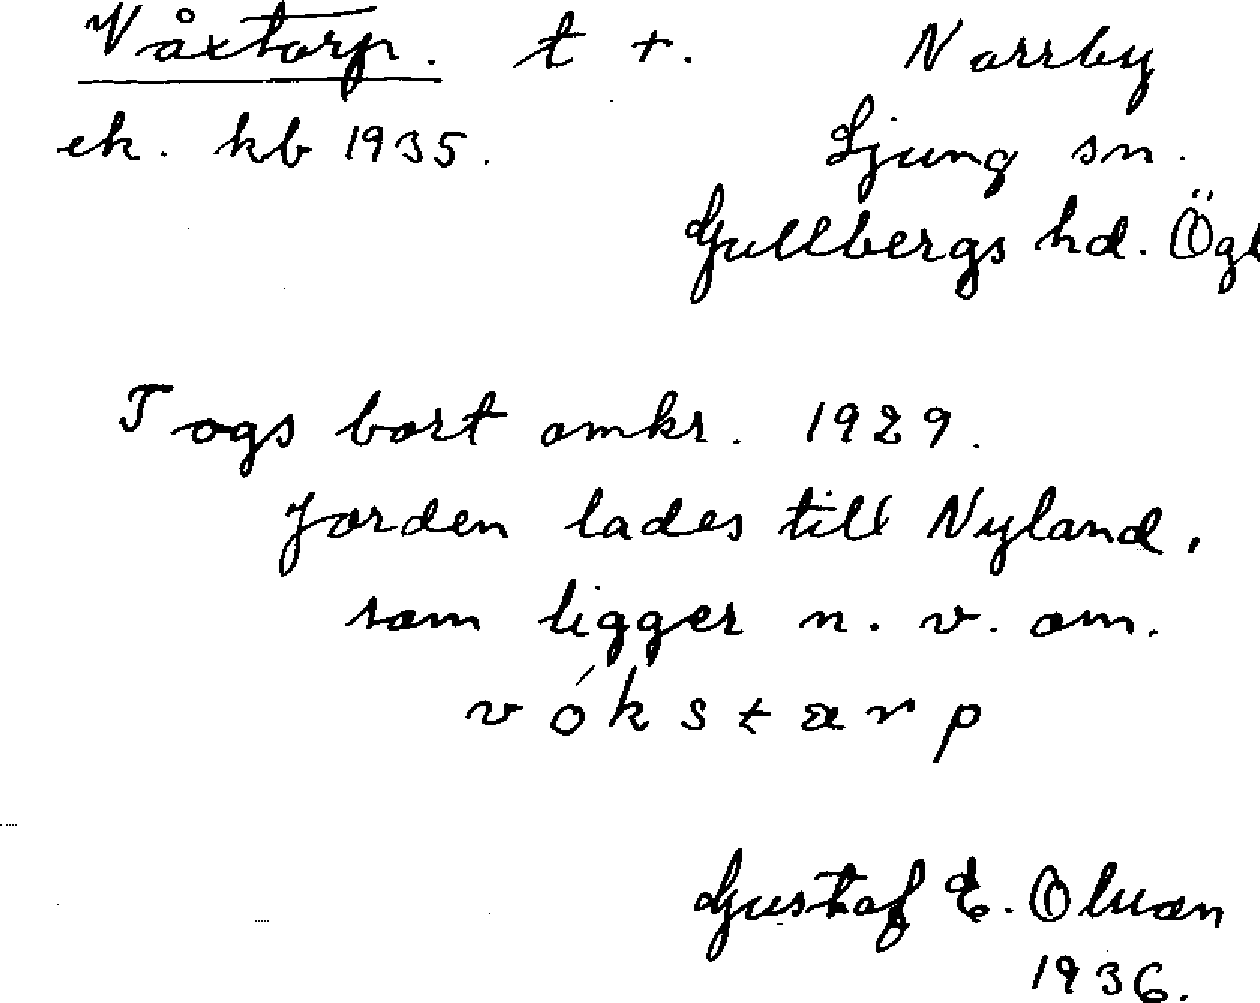 Våxtorp. t +. Norrby
ek. kb 1935. Ljung sn.
Gullbergs hd. Ögl
Togs bort omkr. 1929.
Jorden lades till Nyland,
som ligger n. v. om.
vókstarp
Gustaf E. Olson
1936.